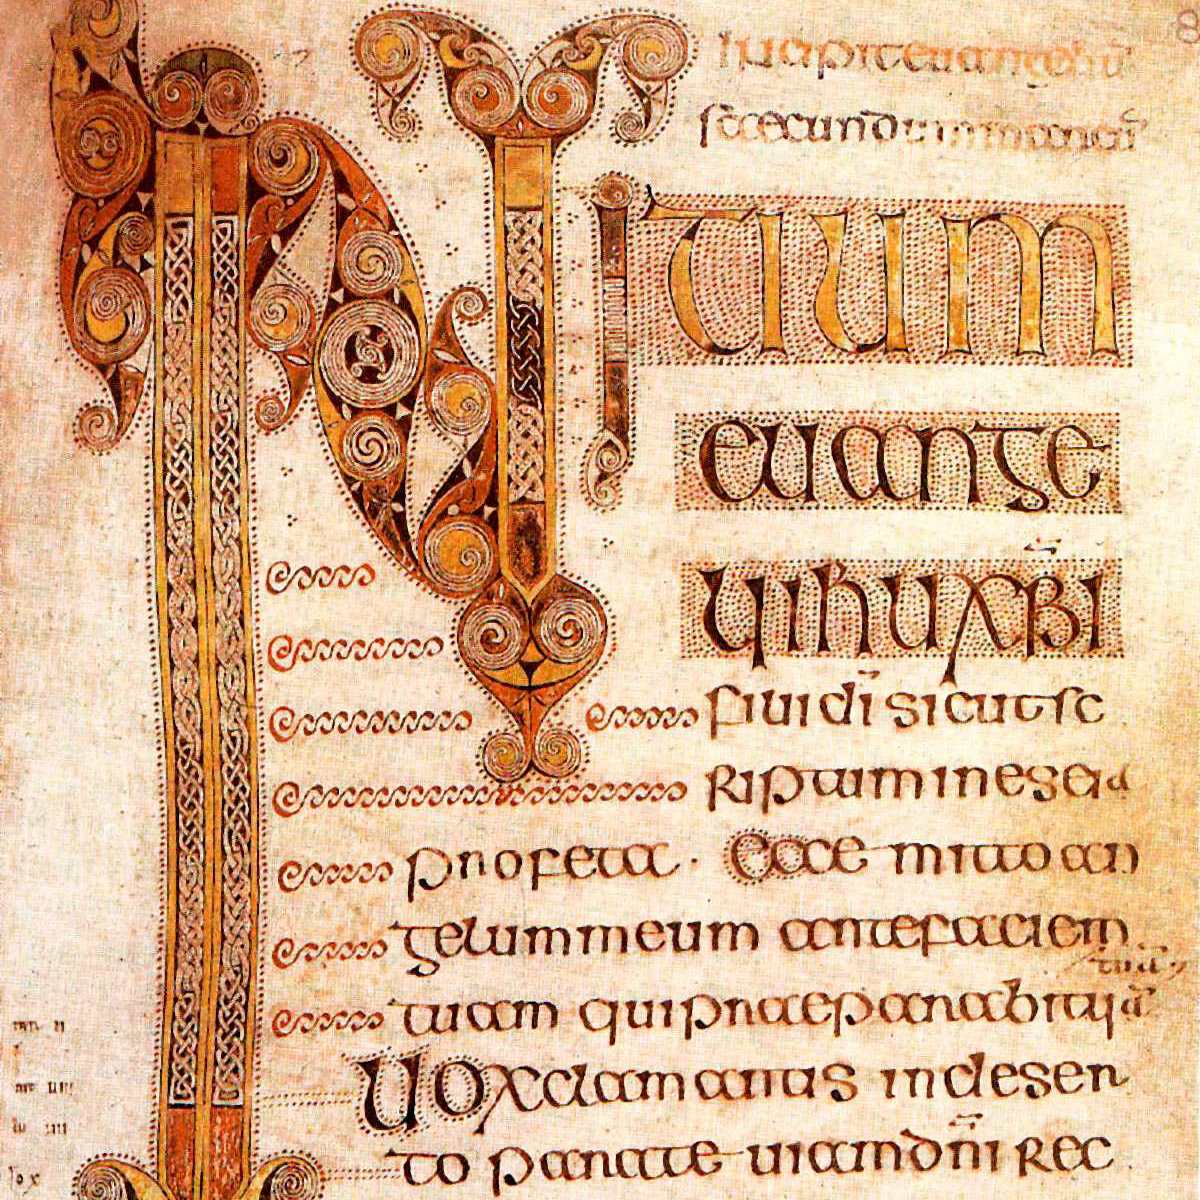 Incipit euangeliū
secundum marcū
INITIUM
euange
lii ihu xp̄i
fili dī sicut sc
riptum in eseia
profeta · ecce mitto an
gelum meum ante faciem
tuam qui praeparabit uiā tuā
Uox clamantis in deser
to parate uiam dn̄i rec